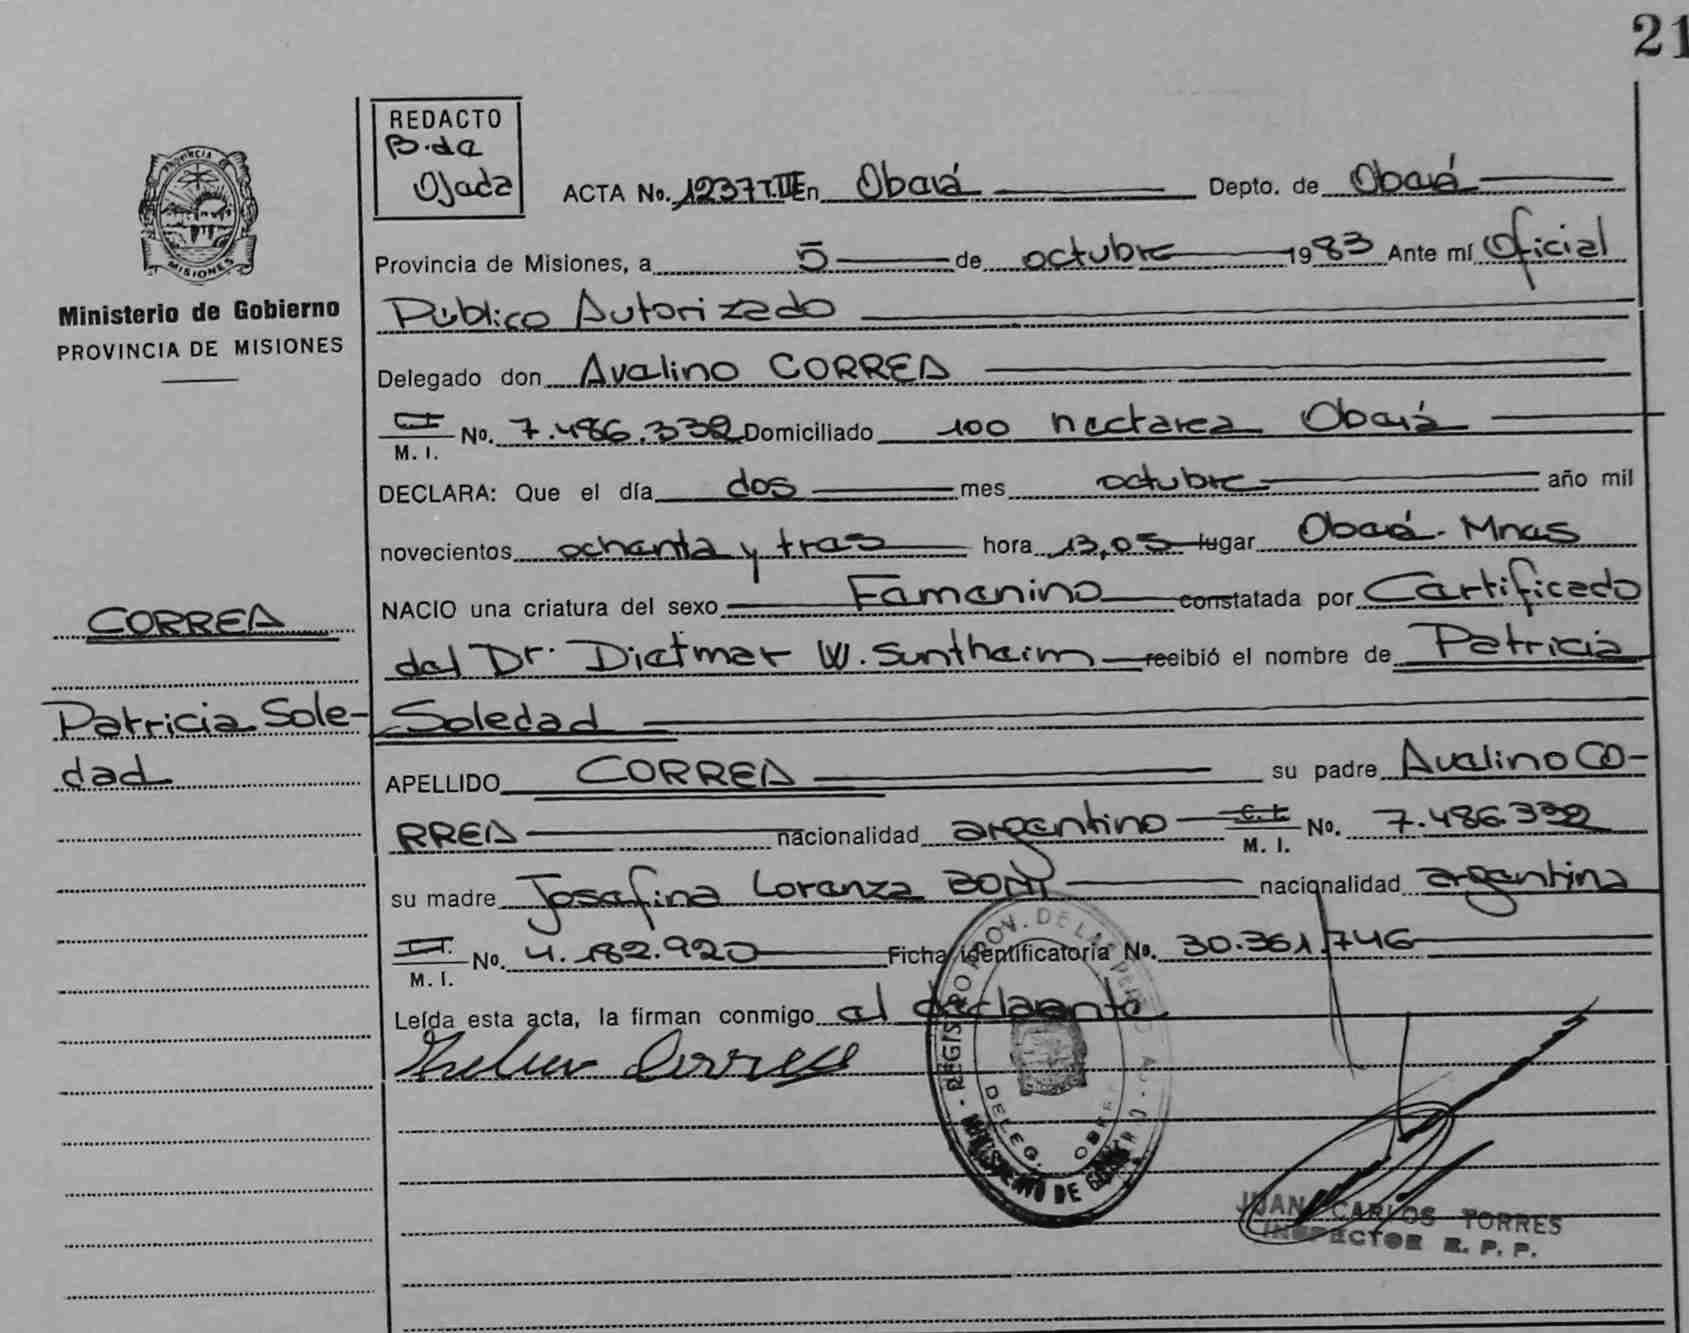 21
REDACTO
B. de
Ojeda
ACTA No. 1237 T.III En Oberá Depto. de Oberá
PROVINCIA
MISIONES
Provincia de Misiones, a 5 de octubre 1983 Ante mí Oficial
Ministerio de Gobierno
PROVINCIA DE MISIONES
Público Autorizado
Delegado don Avelino CORREA
C.I. M. I. No. 7.486.332 Domiciliado 100 hectarea Oberá
DECLARA: Que el día dos mes octubre año mil
novecientos ochenta y tres hora 13,05 lugar Oberá. Mnes
NACIO una criatura del sexo Femenino constatada por Certificado
CORREA
del Dr. Dietmar W. Suntheim recibió el nombre de Patricia
Patricia Sole-
dad
Soledad
APELLIDO CORREA su padre Avelino CO-
RREA nacionalidad argentino C.I. M. I. No. 7.486.332
su madre Josefina Lorenza nacionalidad argentina
M. I. No. 4.182.920 Ficha identificatoria No. 30.361.746
Leída esta acta, la firman conmigo el declarante
REGISTRO PROV. DE LAS PERSONAS
DELEG. OBERA
MINISTERIO DE GOBIERNO
JUAN CARLOS TORRES
INSPECTOR R. P. P.